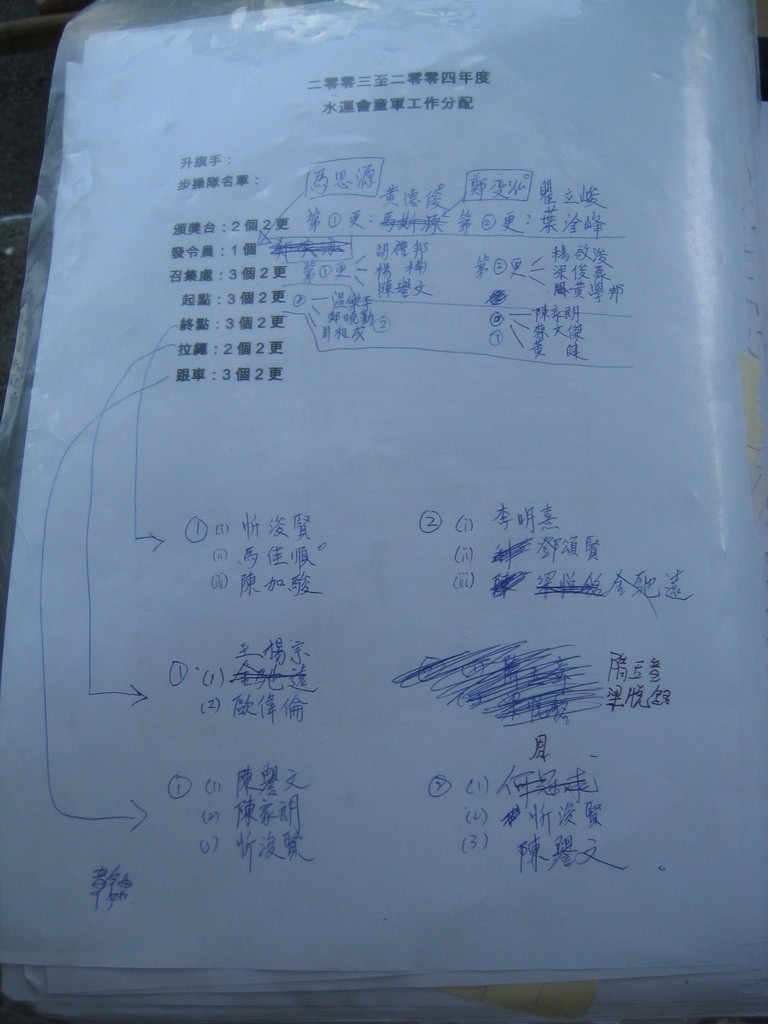 二零零三至二零零四年度
水運會童軍工作分配
升旗手：
步操隊名單： 馬思源
黃德俊 鄭雯泓 瞿立峻
頒獎台：2個2更 第①更： 第②更：葉淦峰
發令員：1個 胡禮邦 楊敏浚
召集處：3個2更 第①更 楊楠 第②更 梁俊豪
陳譽文 黃學邦
起點：3個2更 陳家朗
終點：3個2更 鄭曉勤② 蔡文傑
拉繩：2個2更 ① 黃
跟車：3個2更
① (i) 忻浚賢 ② (i) 李明熹
(ii) 馬佳順 (ii) 鄧頌賢
(iii) 陳加駿 (iii) 金馳遠
王楊宗
① (1) 金馳遠
(2) 歐偉倫 梁悅銘
① (1) 陳譽文 ② (1)
(2) 陳家朗 (2) 忻浚賢
(3) 忻浚賢 (3) 陳譽文